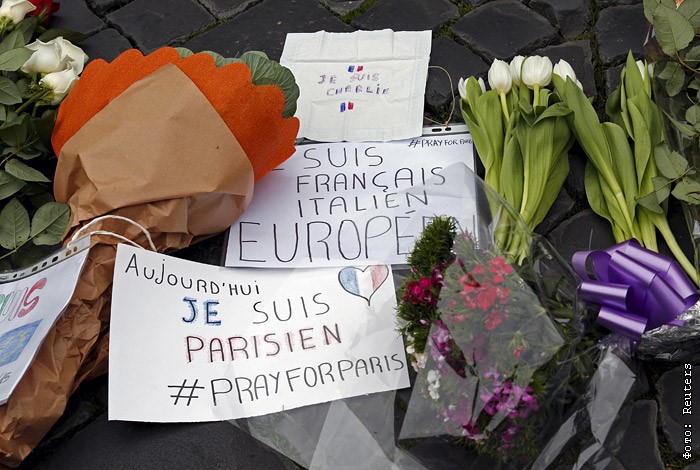 JE SUIS
CHARLIE
#PRAYFOR
SUIS
FRANÇAIS
ITALIEN
EUROPÉEN
AUJOURD'HUI
JE SUIS
PARISIEN
#PRAYFORPARIS
Фото: Reuters